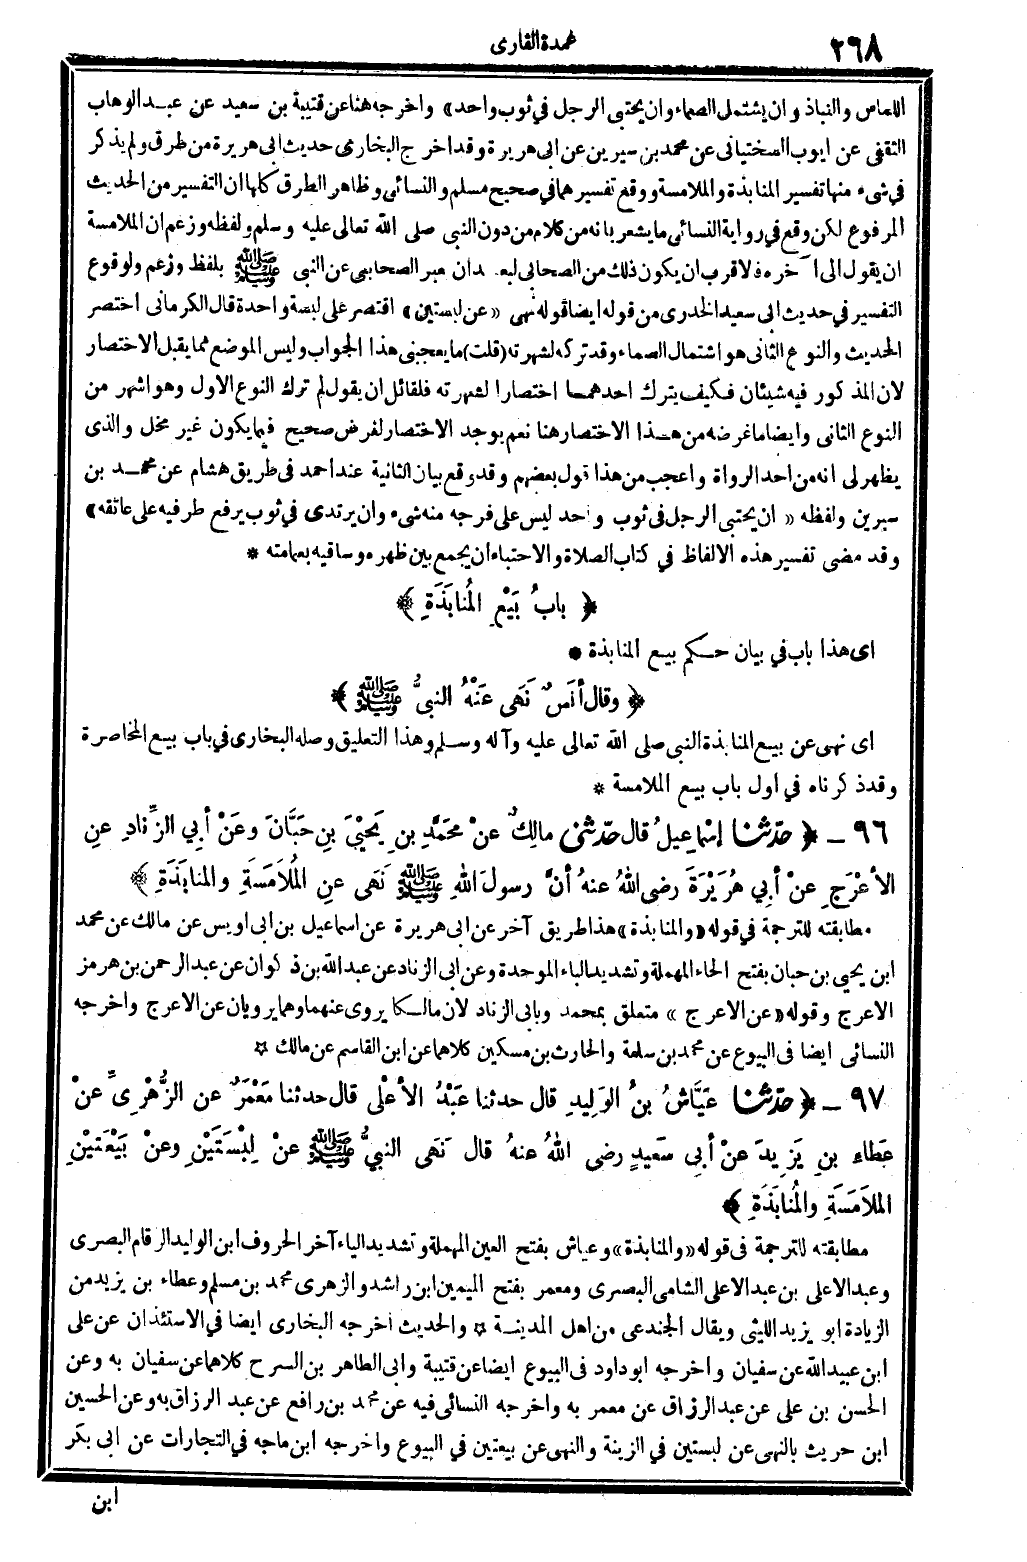 ٢٦٨
عمدة القارى
اللماس والنباذ وان يشتمل الصماء وان يحتبى الرجل في ثوب واحد» واخرجه هنا عن قتيبة بن سعيد عن عبد الوهاب
الثقفى عن ايوب السختيانى عن محمد بن سيرين عن ابى هريرة وقد اخرج البخارى حديث ابى هريرة من طرق ولم يذكر
في شىء منها تفسير المنابذة والملامسة ووقع تفسيرهما في صحيح مسلم والنسائى وظاهر الطرق كلها ان التفسير من الحديث
المرفوع لكن وقع في رواية النسائى ما يشعر بانه من كلام من دون النبى صلى الله تعالى عليه وسلم ولفظه وزعم ان الملامسة
ان يقول الى آخره فلاقرب ان يكون ذلك من الصحابى لبعد ان عبر الصحابى عن النبى ﷺ بلفظ وزعم ولوقوع
التفسير في حديث ابى سعيد الخدرى من قوله ايضا قوله نهى «عن لبستين» اقتصر على لبسة واحدة قال الكرمانى اختصر
الحديث والنوع الثانى هو اشتمال الصماء وقد تركه لشهرته (قلت) ما يعجبنى هذا الجواب وليس الموضع مما يقبل الاختصار
لان المذكور فيه شيئان فكيف يترك احدهما اختصارا لشهرته فلقائل ان يقول لم ترك النوع الاول وهو اشهر من
النوع الثانى وايضا ما غرضه من هذا الاختصار هنا نعم يوجد الاختصار لغرض صحيح فيما يكون غير مخل والذى
يظهر لى انه من احد الرواة واعجب من هذا قول بعضهم وقد وقع بيان الثانية عند احمد فى طريق هشام عن محمد بن
سيرين ولفظه «ان يحتبى الرجل فى ثوب واحد ليس على فرجه منه شىء وان يرتدى في ثوب يرفع طرفيه على عاتقه»
وقد مضى تفسير هذه الالفاظ في كتاب الصلاة والاحتباء ان يجمع بين ظهره وساقيه بعمامته *
﴿ بابُ بَيْعِ المُنابَذَةِ ﴾
اى هذا باب في بيان حكم بيع المنابذة *
﴿ وقال أنَسٌ نَهَى عَنْهُ النبىُّ ﷺ ﴾
اى نهى عن بيع المنابذة النبى صلى الله تعالى عليه وآله وسلم وهذا التعليق وصله البخارى في باب بيع المخاصرة
وقد ذكرناه في اول باب بيع الملامسة *
٩٦ ــ ﴿ حدّثنا إسْماعِيلُ قال حدّثنى مالِكٌ عنْ مُحَمَّدِ بنِ يَحْيَى بنِ حَبَّانَ وعَنْ أبي الزِّنادِ عنِ
الأعْرَجِ عنْ أبي هُرَيْرَةَ رضى اللهُ عنهُ أنَّ رسولَ اللهِ ﷺ نَهَى عنِ المُلامَسَةِ والمنابَذَةِ ﴾
مطابقته للترجمة في قوله «والمنابذة» هذا طريق آخر عن ابى هريرة عن اسماعيل بن ابى اويس عن مالك عن محمد
ابن يحيى بن حبان بفتح الحاء المهملة وتشديد الباء الموحدة وعن ابى الزناد عن عبد الله بن ذكوان عن عبد الرحمن بن هرمز
الاعرج وقوله «عن الاعرج» متعلق بمحمد وبابى الزناد لان مالكا يروى عنهما وهما يرويان عن الاعرج واخرجه
النسائى ايضا فى البيوع عن محمد بن سلمة والحارث بن مسكين كلاهما عن ابن القاسم عن مالك *
٩٧ ــ ﴿ حدّثنا عَيَّاشُ بنُ الوَلِيدِ قال حدثنا عَبْدُ الأعْلى قال حدثنا مَعْمَرٌ عن الزُّهْرِىِّ عنْ
عَطاءِ بنِ يَزِيدَ عنْ أبى سَعيدٍ رضى اللهُ عنهُ قال نَهَى النبىُّ ﷺ عنْ لِبْسَتَيْنِ وعنْ بَيْعَتَيْنِ
المُلامَسَةِ والمُنابَذَةِ ﴾
مطابقته للترجمة فى قوله «والمنابذة» وعياش بفتح العين المهملة وتشديد الياء آخر الحروف ابن الوليد الرقام البصرى
وعبد الاعلى بن عبد الاعلى الشامى البصرى ومعمر بفتح الميمين ابن راشد والزهرى محمد بن مسلم وعطاء بن يزيد من
الزيادة ابو يزيد الليثى ويقال الجندعى من اهل المدينة * والحديث اخرجه البخارى ايضا في الاستئذان عن على
ابن عبيد الله عن سفيان واخرجه ابو داود فى البيوع ايضا عن قتيبة وابى الطاهر بن السرح كلاهما عن سفيان به وعن
الحسن بن على عن عبد الرزاق عن معمر به واخرجه النسائى فيه عن محمد بن رافع عن عبد الرزاق به وعن الحسين
ابن حريث بالنهى عن لبستين في الزينة والنهى عن بيعتين في البيوع واخرجه ابن ماجه في التجارات عن ابى بكر
ابن